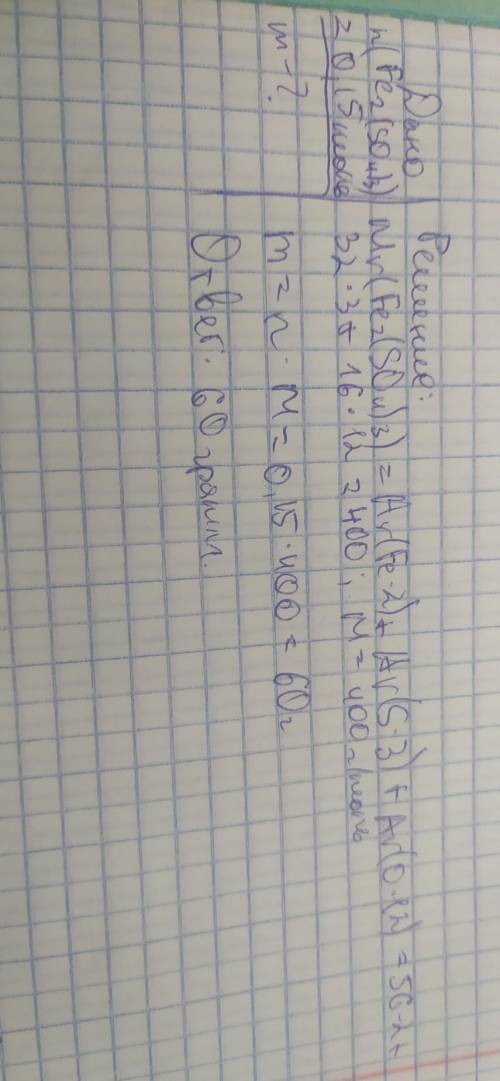 Дано
n(Fe2(SO4)3)
= 0,15 моль
m - ?
Решение:
Mr(Fe2(SO4)3) = Ar(Fe·2) + Ar(S·3) + Ar(O·12) = 56·2 +
32·3 + 16·12 = 400; M = 400 г/моль
m = n · M = 0,15·400 = 60 г
Ответ: 60 грамм.